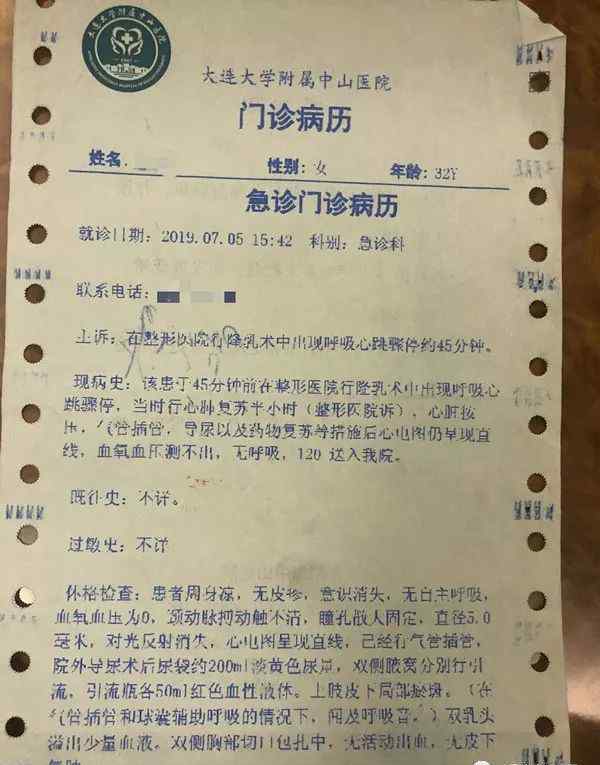 大连大学附属中山医院
大连大学附属中山医院
门诊病历
姓名: 性别: 女 年龄: 32Y
急诊门诊病历
就诊日期: 2019.07.05 15:42 科别: 急诊科
联系电话:
主诉: 在整形医院行隆乳术中出现呼吸心跳骤停约45分钟。
现病史: 该患于45分钟前在整形医院行隆乳术中出现呼吸心
跳骤停, 当时行心肺复苏半小时(整形医院诉), 心脏按
压, 气管插管, 导尿以及药物复苏等措施后心电图仍呈现直
线, 血氧血压测不出, 无呼吸, 120 送入我院。
既往史: 不详。
过敏史: 不详
体格检查: 患者周身凉, 无皮疹, 意识消失, 无自主呼吸,
血氧血压为0, 颈动脉搏动触不清, 瞳孔散大固定, 直径5.0
毫米, 对光反射消失, 心电图呈现直线, 已经行气管插管,
院外导尿术后尿袋约200ml淡黄色尿量, 双侧腋窝分别行引
流, 引流瓶各50ml红色血性液体。上肢皮下局部瘀斑。(在
气管插管和球囊辅助呼吸的情况下, 闻及呼吸音。) 双乳头
溢出少量血液。双侧胸部切口包扎中, 无活动出血, 无皮下